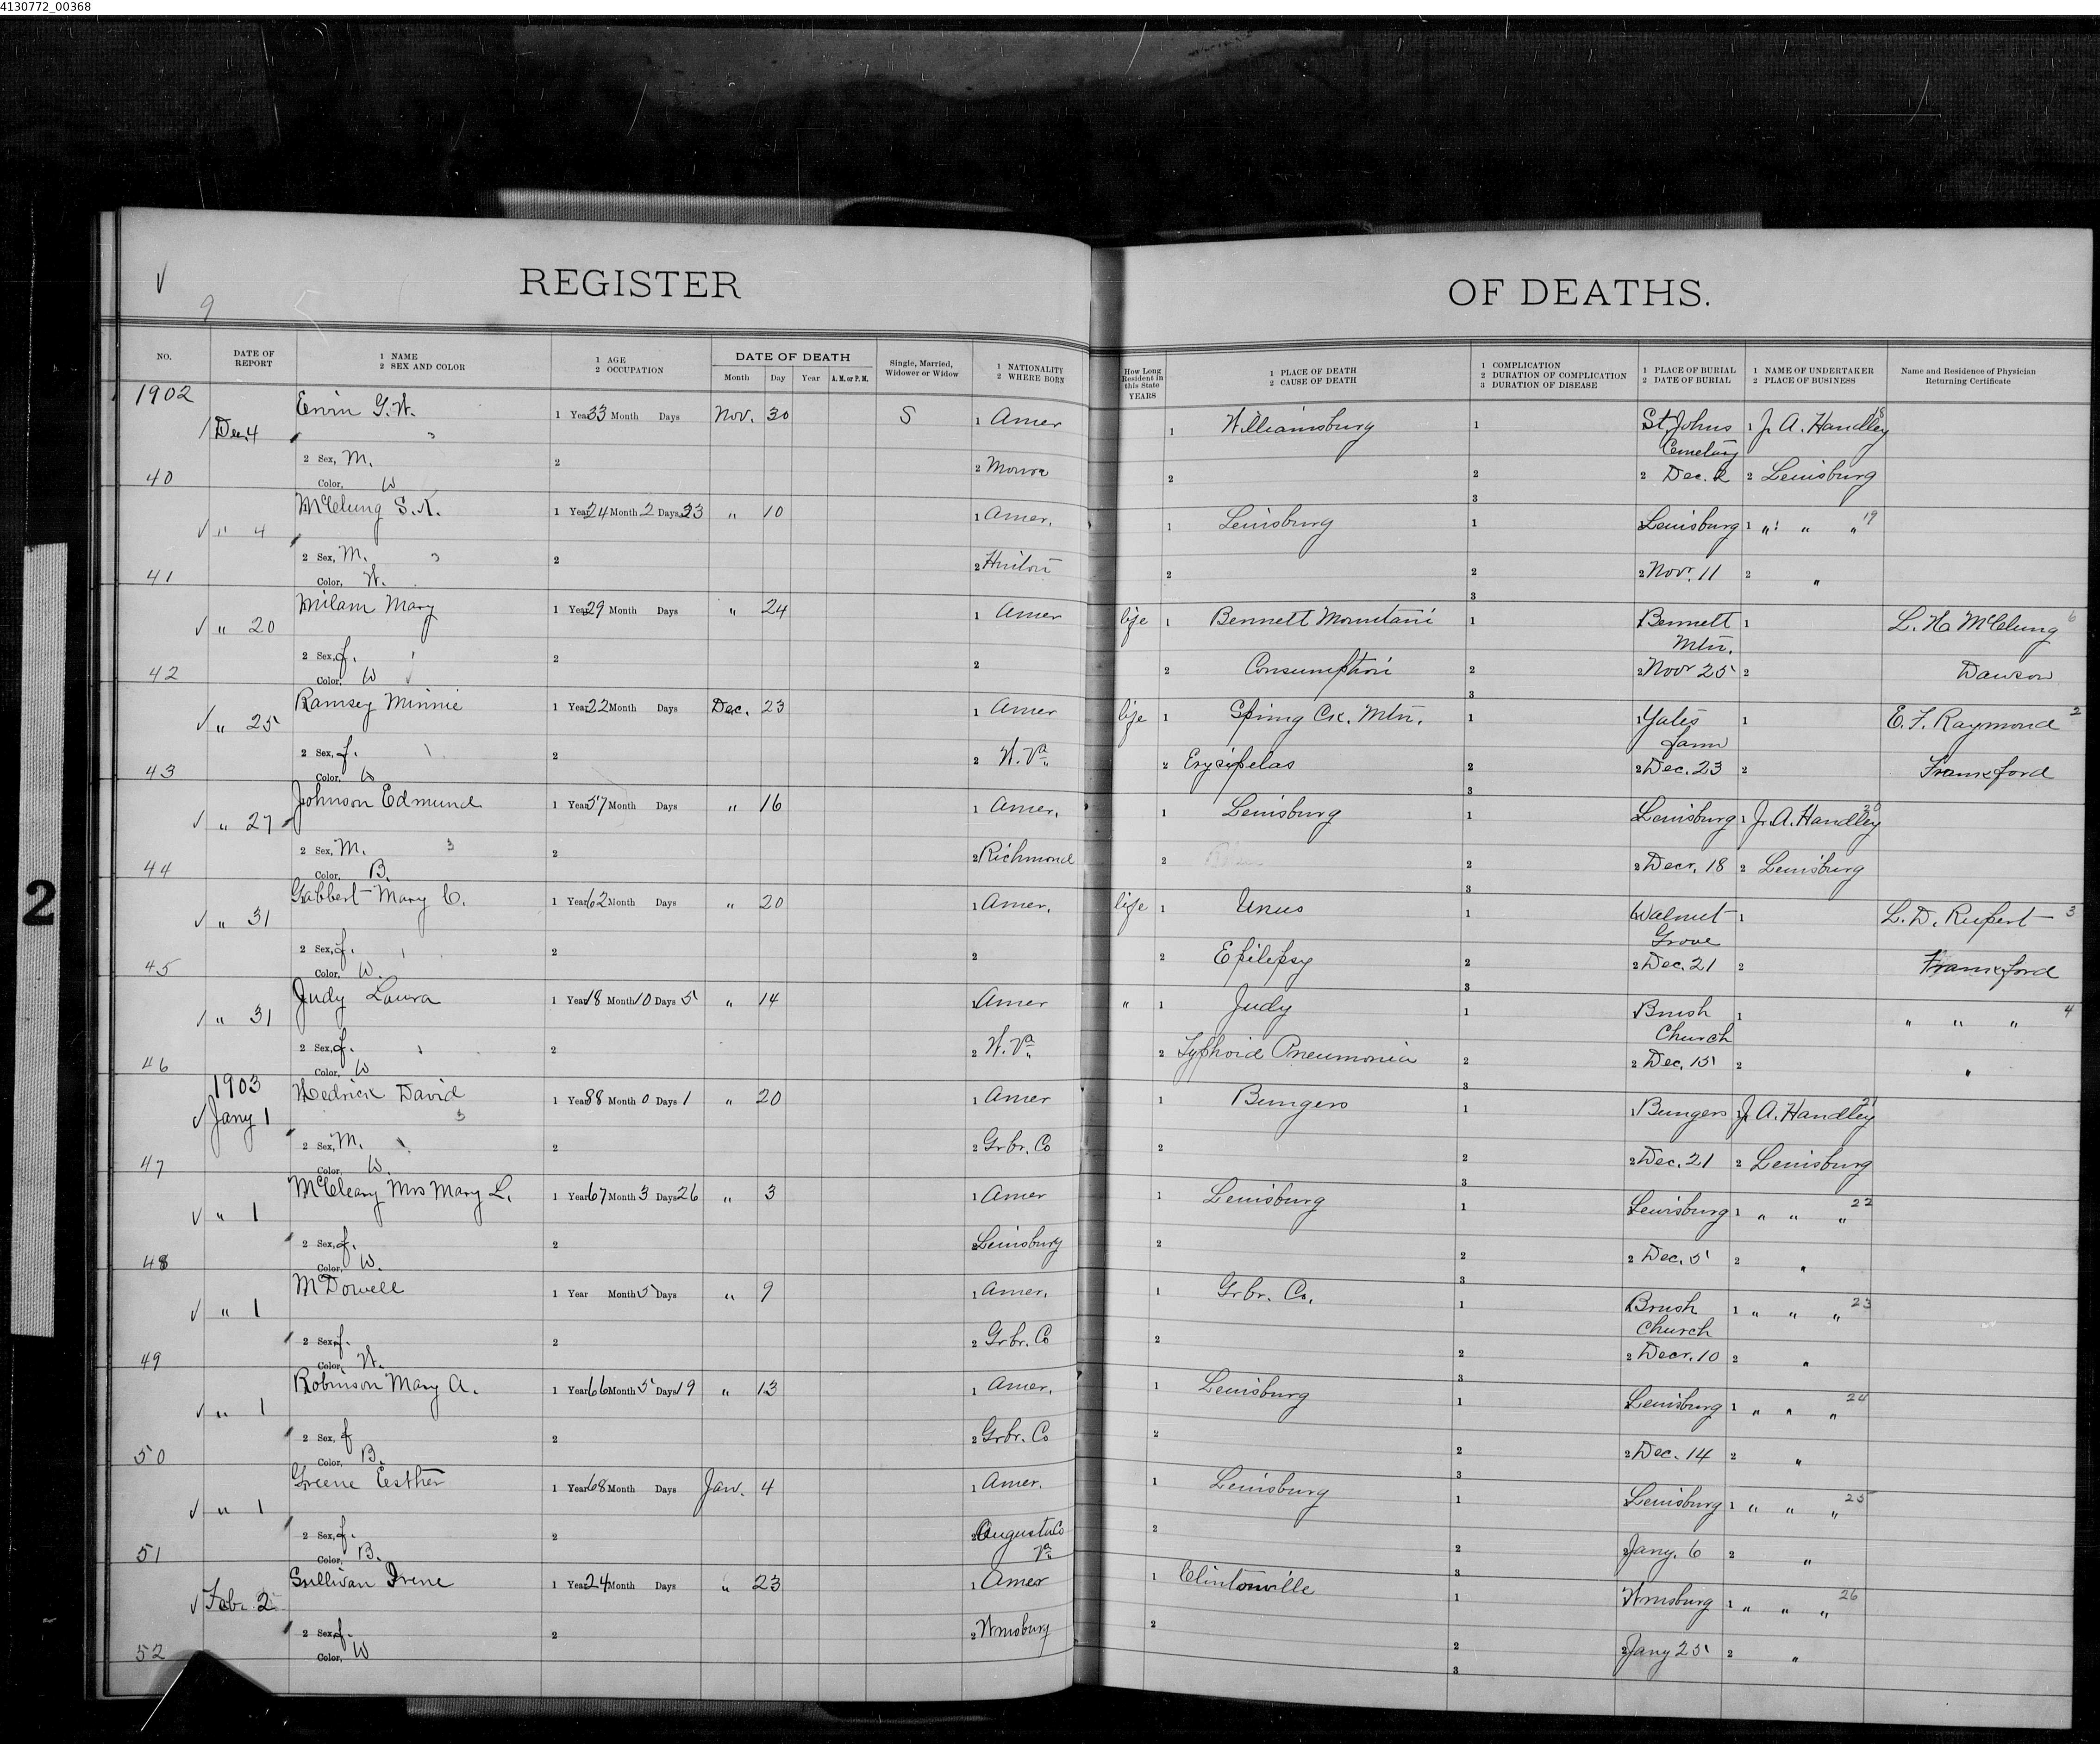 4130772_00368
REGISTER OF DEATHS.
NO.
DATE OF REPORT
1 NAME
2 SEX AND COLOR
1 AGE
2 OCCUPATION
DATE OF DEATH
Month Day Year A. M. or P. M.
Single, Married, Widower or Widow
1 NATIONALITY
2 WHERE BORN
How Long Resident in this State YEARS
1 PLACE OF DEATH
2 CAUSE OF DEATH
1 COMPLICATION
2 DURATION OF COMPLICATION
3 DURATION OF DISEASE
1 PLACE OF BURIAL
2 DATE OF BURIAL
1 NAME OF UNDERTAKER
2 PLACE OF BUSINESS
Name and Residence of Physician Returning Certificate
1902
Dec. 4 Ervin G. W. 1 Year 33 Month Days Nov. 30 S 1 Amer 1 Williamsburg 1 St. Johns Cemetary 1 J. A. Handley 18
40 2 Sex, M. Color, W 2 2 Monroe 2 2 3 2 Dec. 2 2 Lewisburg
" 4 McClung S. K. 1 Year 24 Month 2 Days 23 " 10 1 Amer. 1 Lewisburg 1 Lewisburg 1 " " " 19
41 2 Sex, M. Color, W. 2 2 Hinton 2 2 3 2 Novr. 11 2 "
" 20 Milam Mary 1 Year 29 Month Days " 24 1 Amer life 1 Bennett Mountain 1 Bennett Mtn. 1 L. H. McClung 6
42 2 Sex, f. Color, W 2 2 2 Consumption 2 3 2 Novr 25 2 Dawson
" 25 Ramsey Minnie 1 Year 22 Month Days Dec. 23 1 Amer life 1 Spring Ck. Mtn. 1 1 Yates farm 1 E. F. Raymond 2
43 2 Sex, f. Color, W 2 2 W. Va. 2 Erysipelas 2 3 2 Dec. 23 2 Frankford
" 27 Johnson Edmund 1 Year 57 Month Days " 16 1 Amer. 1 Lewisburg 1 Lewisburg 1 J. A. Handley 20
44 2 Sex, M. Color, B. 2 2 Richmond 2 2 3 2 Decr. 18 2 Lewisburg
" 31 Gabbert Mary C. 1 Year 62 Month Days " 20 1 Amer. life 1 Unus 1 Walnut Grove 1 L. D. Rupert 3
45 2 Sex, f. Color, W. 2 2 2 Epilepsy 2 3 2 Dec. 21 2 Frankford
" 31 Judy Laura 1 Year 18 Month 10 Days 5 " 14 1 Amer " 1 Judy 1 Brush Church 1 " " " 4
46 2 Sex, f. Color, W 2 2 W. Va. 2 Typhoid Pneumonia 2 3 2 Dec. 15 2 "
1903
Jany 1 Hedrick David 1 Year 88 Month 0 Days 1 " 20 1 Amer 1 Bungers 1 1 Bungers 1 J. A. Handley 21
47 2 Sex, M. Color, W. 2 2 Grbr. Co 2 2 3 2 Dec. 21 2 Lewisburg
" 1 McCleary Mrs Mary L. 1 Year 67 Month 3 Days 26 " 3 1 Amer 1 Lewisburg 1 Lewisburg 1 " " " 22
48 2 Sex, f. Color, W. 2 2 Lewisburg 2 2 3 2 Dec. 5 2 "
" 1 McDowell 1 Year Month 5 Days " 9 1 Amer. 1 Grbr. Co. 1 Brush Church 1 " " " 23
49 2 Sex, f. Color, W. 2 2 Grbr. Co 2 2 3 2 Decr. 10 2 "
" 1 Robinson Mary A. 1 Year 66 Month 5 Days 19 " 13 1 Amer. 1 Lewisburg 1 Lewisburg 1 " " " 24
50 2 Sex, f Color, B. 2 2 Grbr. Co 2 2 3 2 Dec. 14 2 "
" 1 Greene Esther 1 Year 68 Month Days Jan. 4 1 Amer. 1 Lewisburg 1 Lewisburg 1 " " " 25
51 2 Sex, f. Color, B. 2 2 Augusta Co Va. 2 2 3 2 Jany. 6 2 "
Febr. 2 Sullivan Irene 1 Year 24 Month Days " 23 1 Amer 1 Clintonville 1 Wmsburg 1 " " " 26
52 2 Sex, f. Color, W 2 2 Wmsburg 2 2 3 2 Jany 25 2 "
2